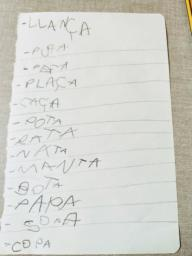 -LLANÇA
-PUPA
-PETA
-PLAÇA
-CAÇA
-POTA
-RATA
-NATA
-MANTA
-BOTA
-PAPA
-SOPA
-COPA